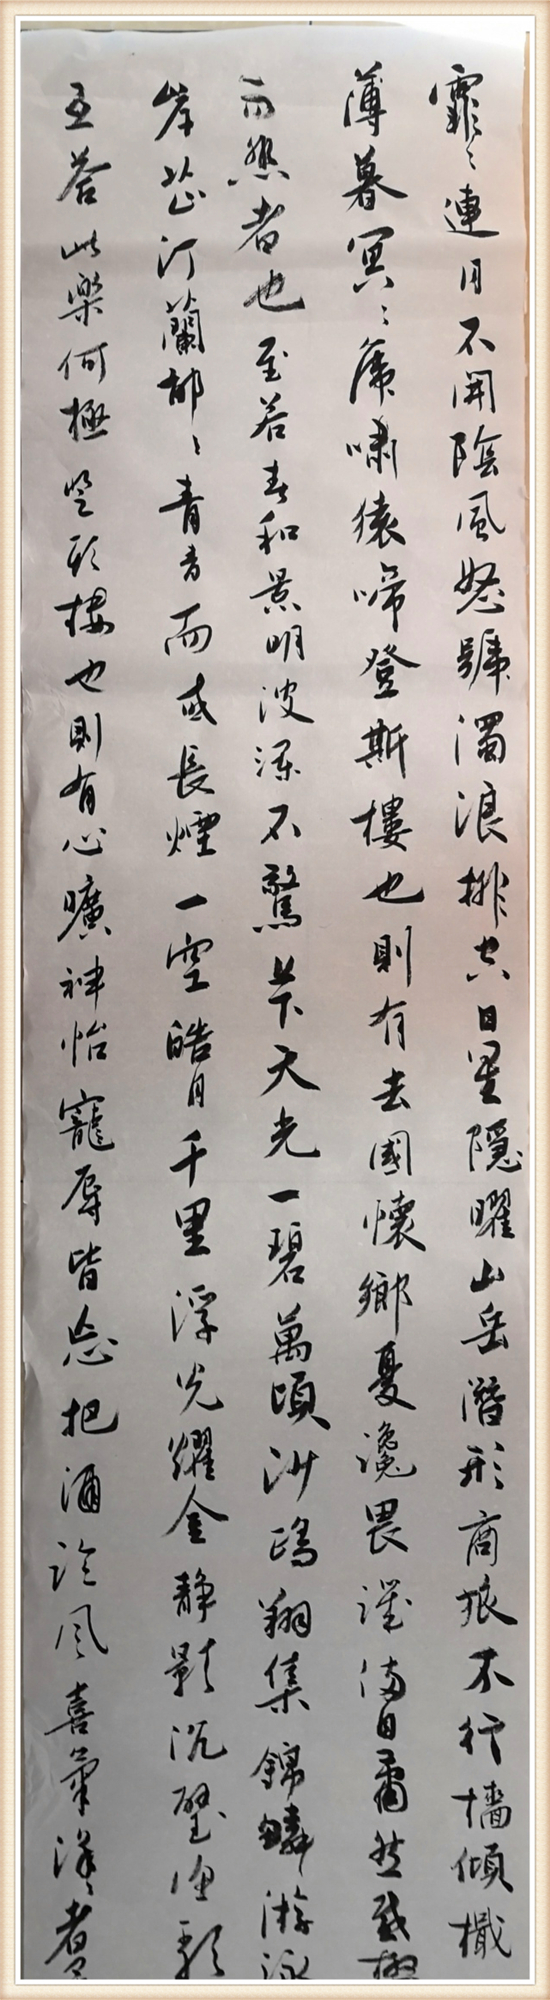 霏〻連月不開陰風怒號濁浪排空日星隱曜山岳潛形商旅不行檣傾檝
薄暮冥〻虎嘯猿啼登斯樓也則有去國懷鄉憂讒畏譏滿目蕭然感極
而悲者也至若春和景明波瀾不驚上下天光一碧萬頃沙鷗翔集錦鱗游泳
岸芷汀蘭郁〻青青而或長煙一空皓月千里浮光耀金静影沉璧漁歌
互答此樂何極登斯樓也則有心曠神怡寵辱皆忘把酒臨風喜氣洋〻者